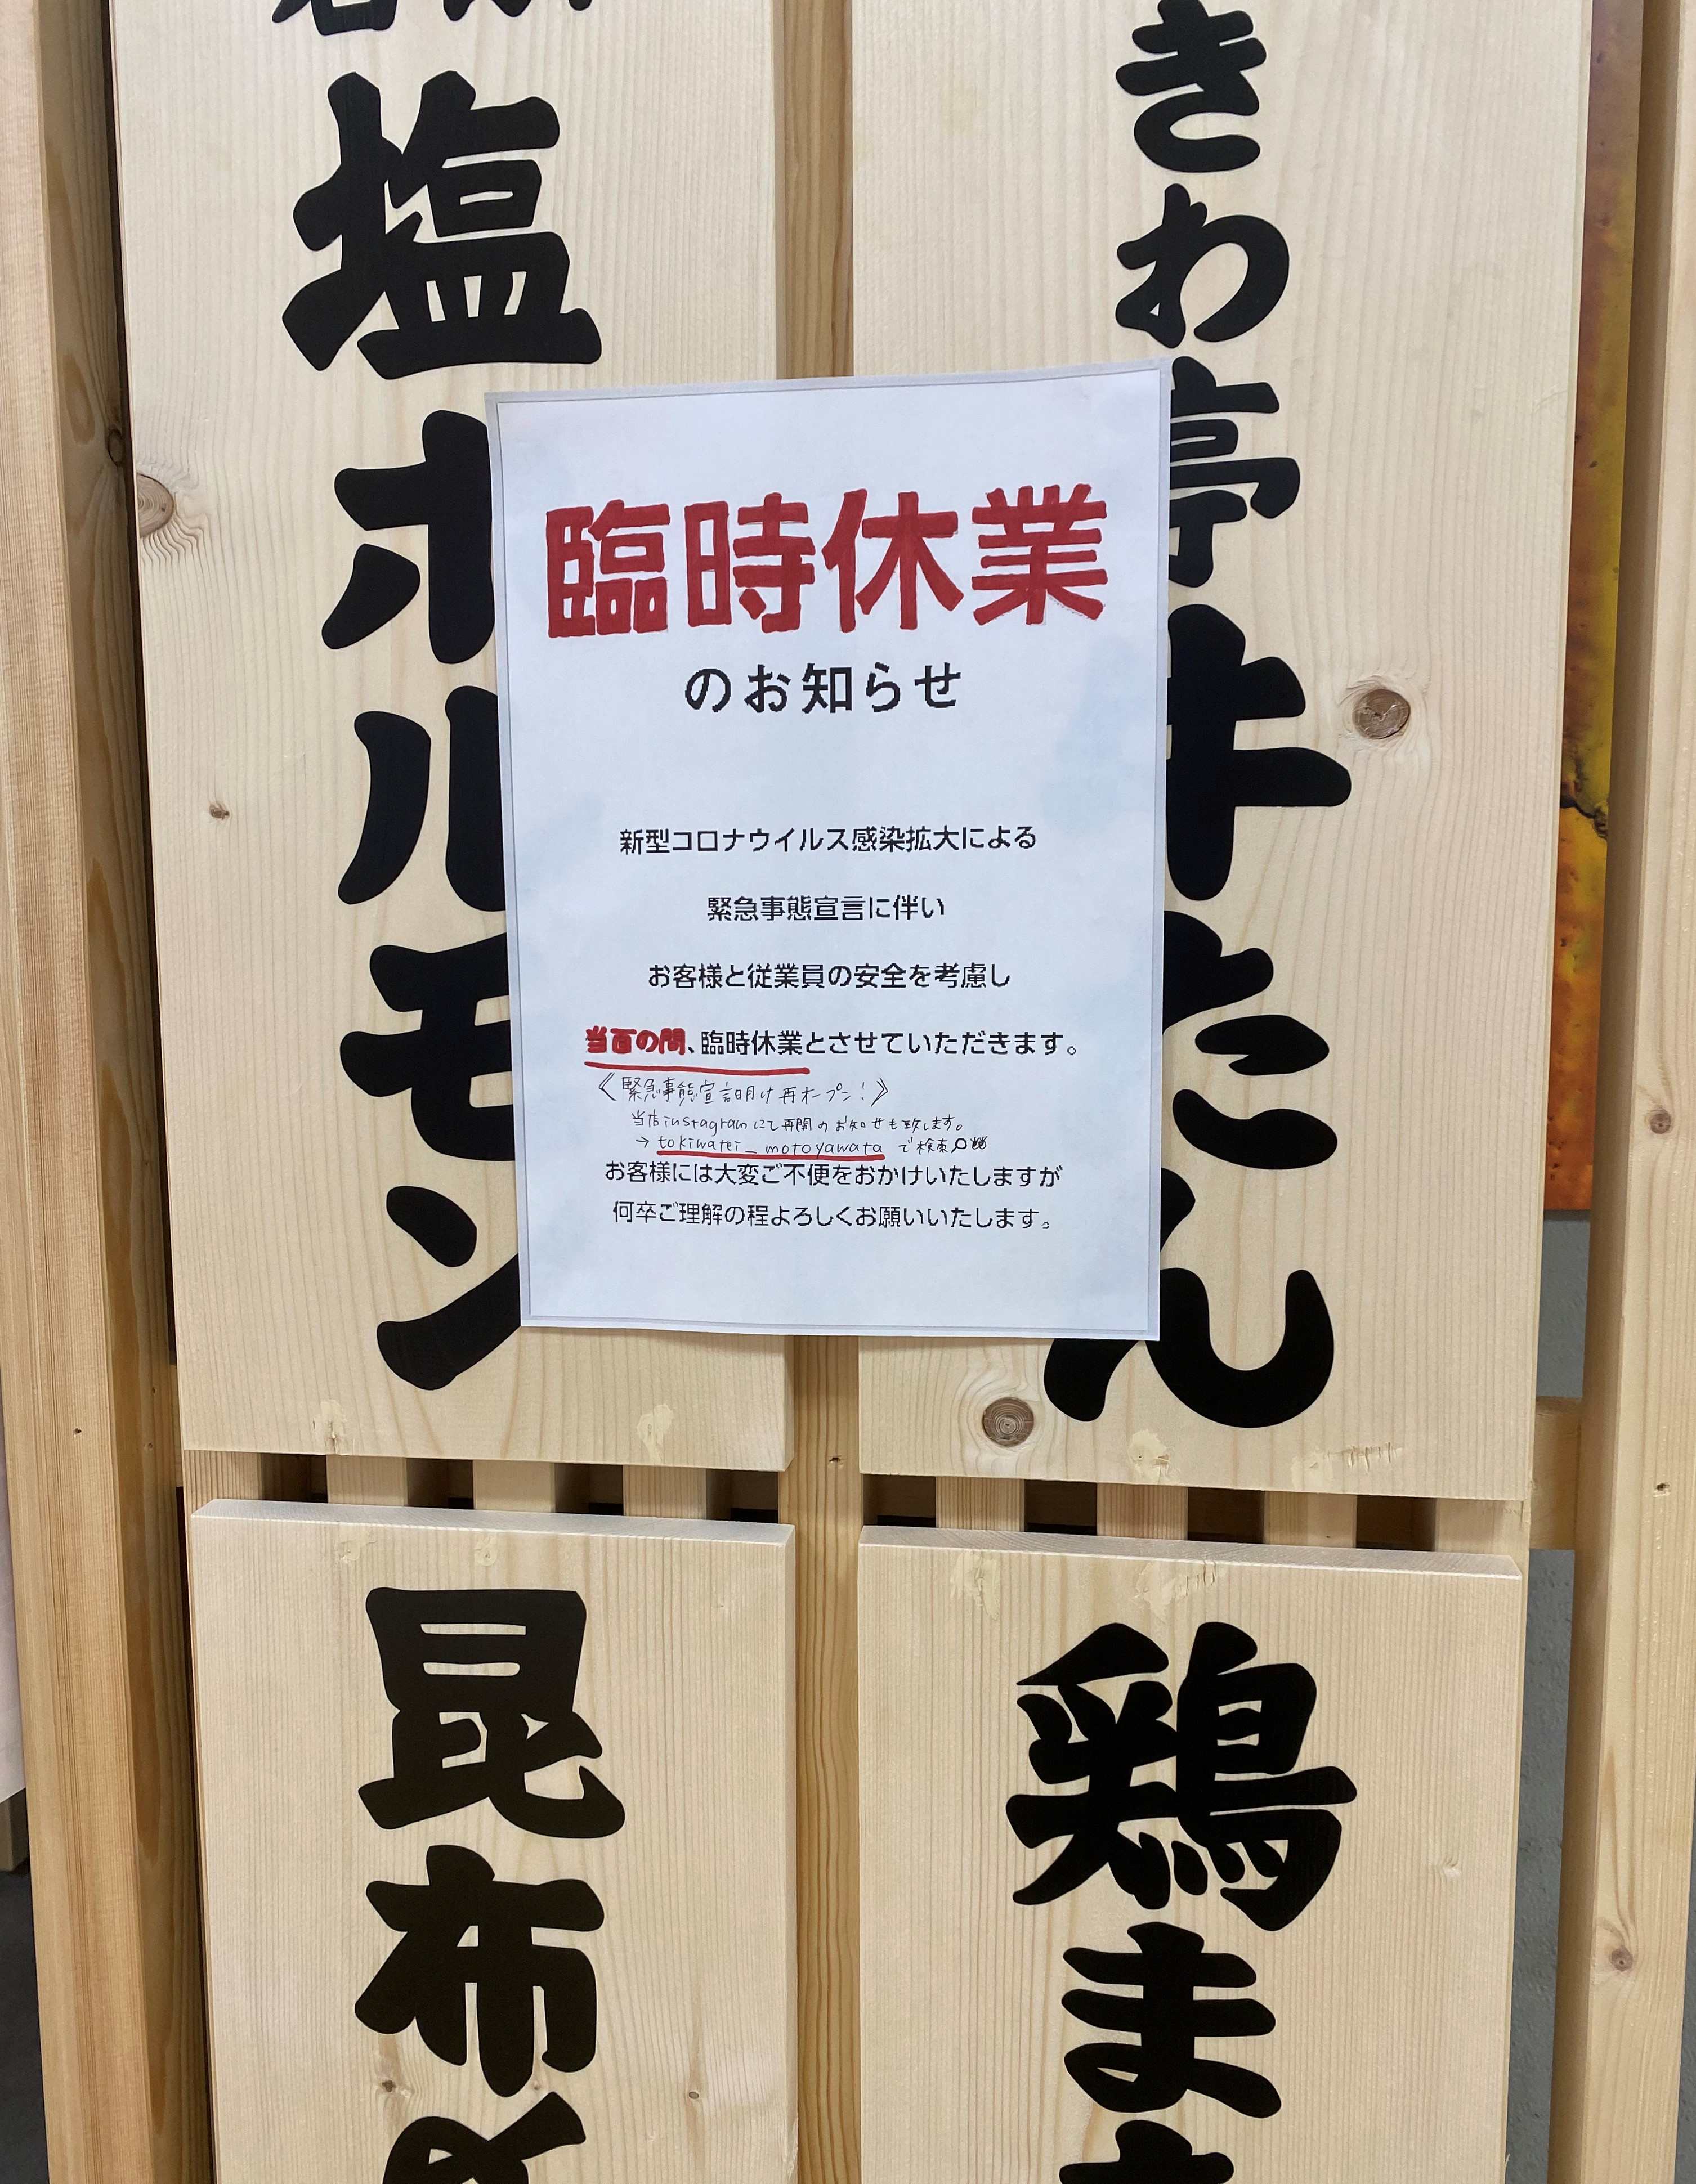 きわ亭牛たん
塩ホルモン
臨時休業
のお知らせ
新型コロナウイルス感染拡大による
緊急事態宣言に伴い
お客様と従業員の安全を考慮し
当面の間、臨時休業とさせていただきます。
《緊急事態宣言明け再オープン!》
当店instagramにて再開のお知せも致します。
→tokiwatei_motoyawataで検索
お客様には大変ご不便をおかけいたしますが
何卒ご理解の程よろしくお願いいたします。
鶏ま
昆布